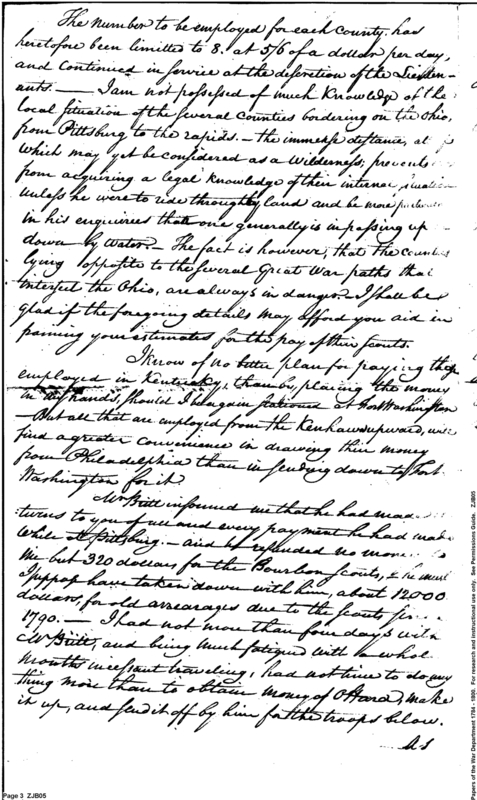 The number to be employed for each County has
heretofore been limitted to 8. at 5/6 of a dollar per day,
and continued in service at the discretion of the Lieuten-
ants. — I am not possessed of much Knowledge of the
local situation of the several Counties bordering on the Ohio,
from Pittsburg to the rapids. — the immense distance, at
which may yet be considered as a Wilderness, prevents
from acquiring a legal knowledge of their internal situation
unless he were to ride through by land and be more particular
in his enquiries than one generally is in passing up
down by Water. — The fact is however, that the Counties
lying opposite to the several Great War paths that
intersect the Ohio, are always in danger. — I shall be
glad if the foregoing details may afford you aid in
framing your estimates for the pay of their scouts.
I know of no better plan for paying those
employed in Kentucky, than by, placing the money
in my hands, should I be again stationed at Fort Washington
— But all that are employed from the Kenhawa upward, will
find a greater convenience in drawing their money
from Philadelphia than in sending down to Fort
Washington for it.
Mr Britt informed me that he had made
turns to you of all and every payment he had made
while at Pittsburg. — and he refunded no money to
me but 320 dollars, for the Bourbon Scouts, & he must
I suppose have taken down with him, about 12000
dollars, for old arrearages due to the scouts for
1790. — I had not more than four days with
Mr Britt, and being much fatigued with a whole
months incessant traveling, had not time to do any
thing more than to obtain money of O Hara, make
it up, and send it off by him for the troops below.
As
Page 3 ZJB05
Papers of the War Department 1784 - 1800. For research and instructional use only. See Permissions Guide. ZJB05